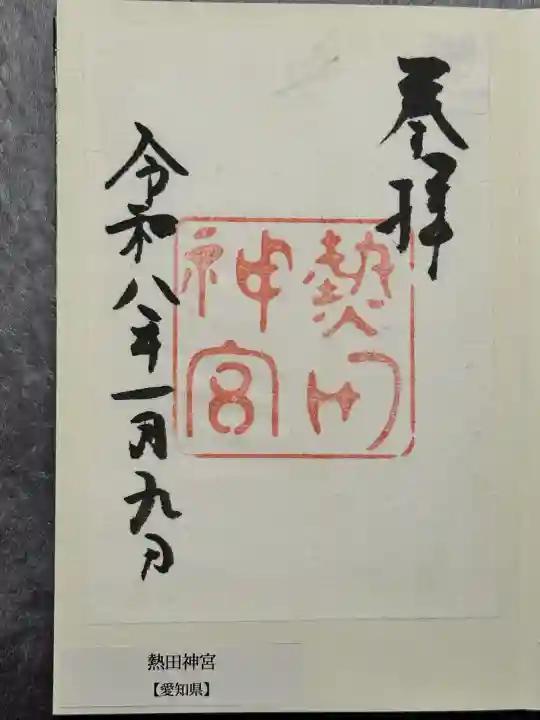 奉拝
熱田
神宮
令和八年一月九日
熱田神宮
【愛知県】